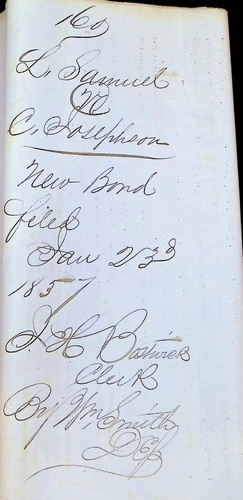 160
L. Samuel
vs
C. Josephson
New Bond
filed
Jan 23d
1857
J. H Bostwick
Clerk
By Wm Smith
D C